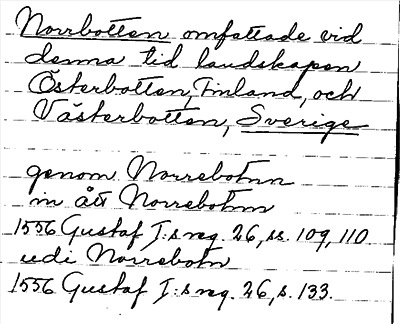 Norrbotten omfattade vid
denna tid landskapen
Österbotten, Finland, och
Västerbotten, Sverige
genom Norrebotnn
in ått Norrebotnn
1556 Gustaf I:s reg. 26, ss. 109, 110.
udi Norrebotn
1556 Gustaf I:s reg. 26, s. 133.